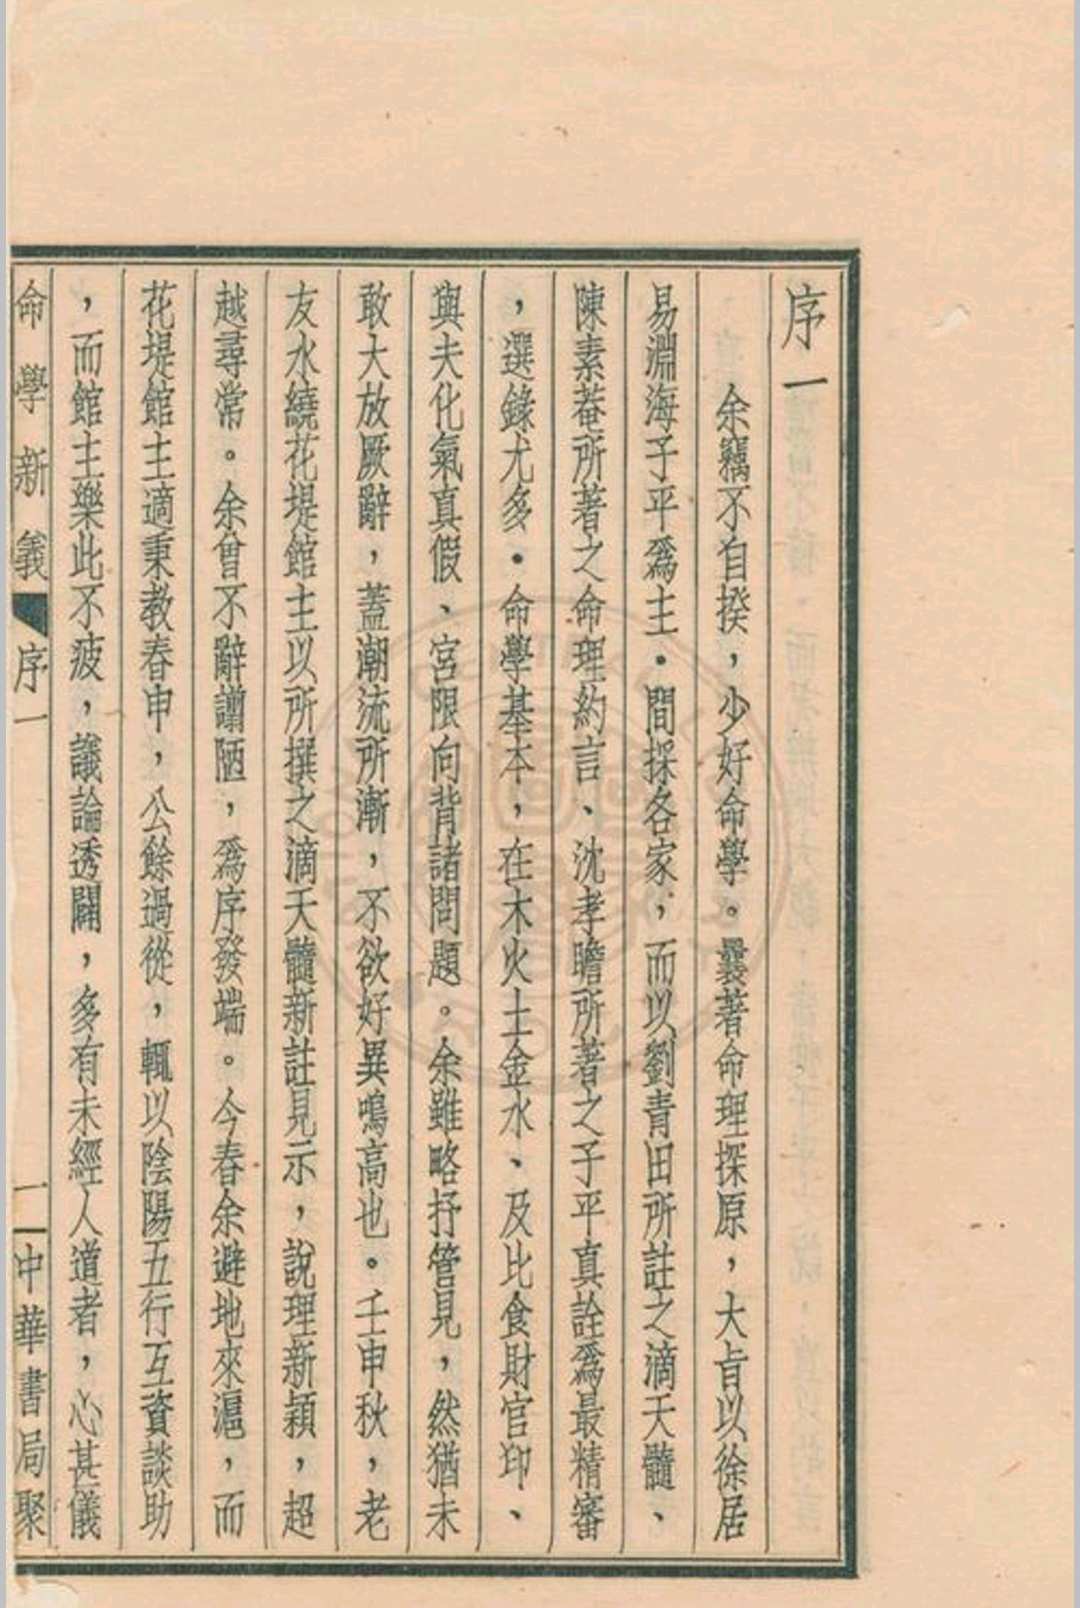 序一
余竊不自揆，少好命學。曩著命理探原，大旨以徐居
易淵海子平爲主．間採各家，而以劉青田所註之滴天髓、
陳素菴所著之命理約言、沈孝瞻所著之子平真詮爲最精審
，選錄尤多．命學基本，在木火土金水、及比食財官印、
與夫化氣真假、宮限向背諸問題。余雖略抒管見，然猶未
敢大放厥辭，蓋潮流所漸，不欲好異鳴高也。壬申秋，老
友水繞花堤館主以所撰之滴天髓新註見示，說理新穎，超
越尋常。余曾不辭譾陋，爲序發端。今春余避地來滬，而
花堤館主適秉教春申，公餘過從，輒以陰陽五行互資談助
，而館主樂此不疲，議論透闢，多有未經人道者，心甚儀
命學新義 序一 一 中華書局聚